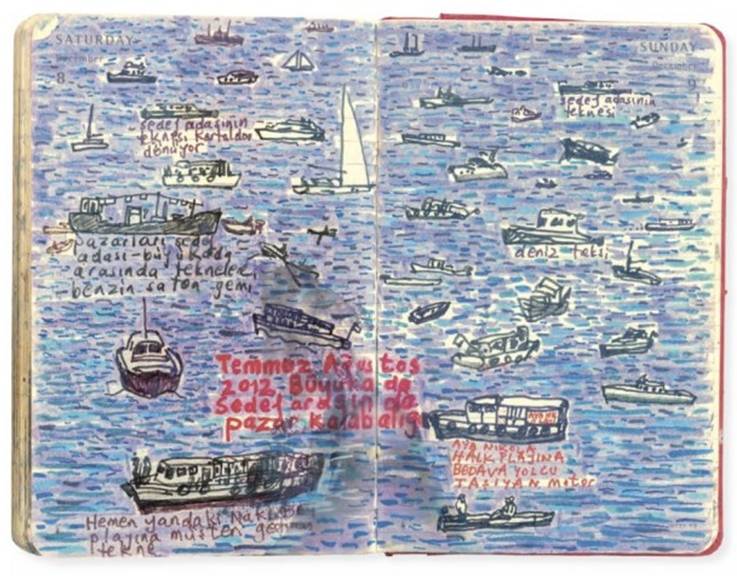 SATURDAY
December
8
sedef adasının
teknesi kartaldan
dönüyor
pazarları sedef
adası-büyükada
arasında teknelere
benzin satan gemi
Temmuz Ağustos
2012 Büyükada
Sedef arasında
pazar kalabalığı
Hemen yandaki Nakibey
plajına müşteri
tekne
SUNDAY
9
sedef adasının
teknesi
deniz taksi
AYA NİKOLA
HALK PLAJINA
BEDAVA YOLCU
TAŞIYAN motor